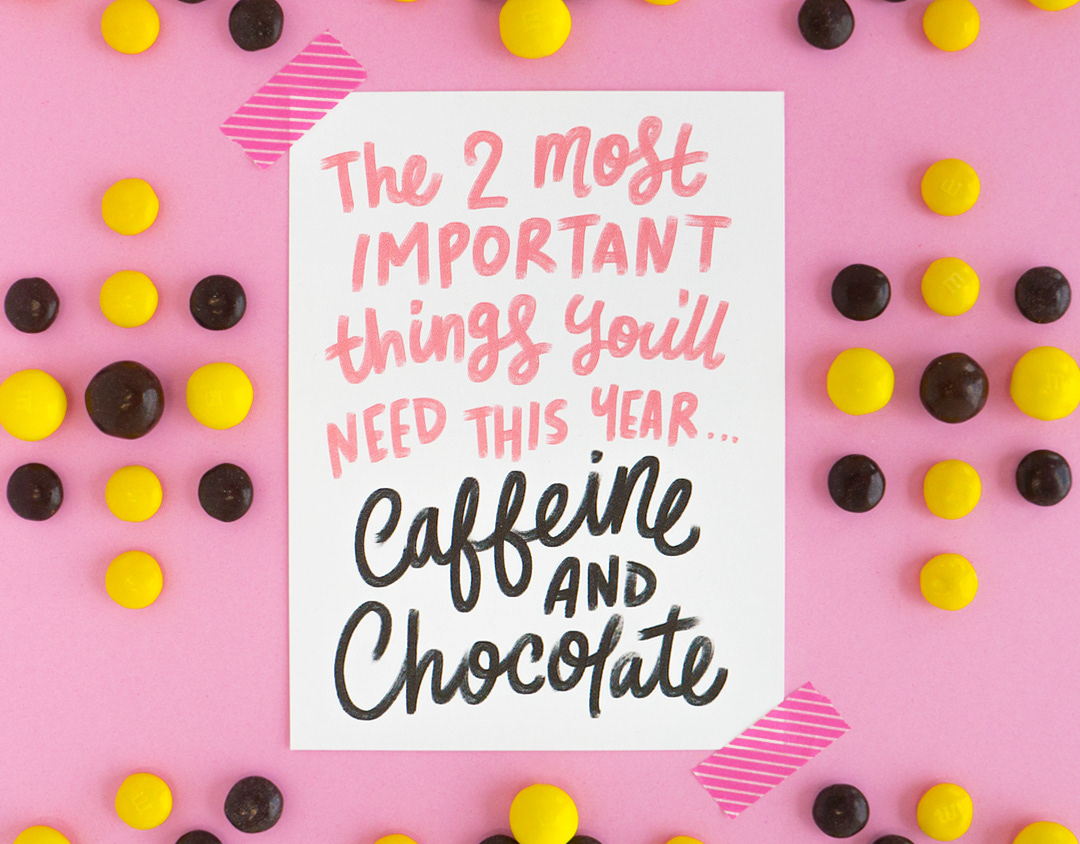 The 2 most
IMPORTANT
things you'll
NEED THIS YEAR...
Caffeine
AND
Chocolate